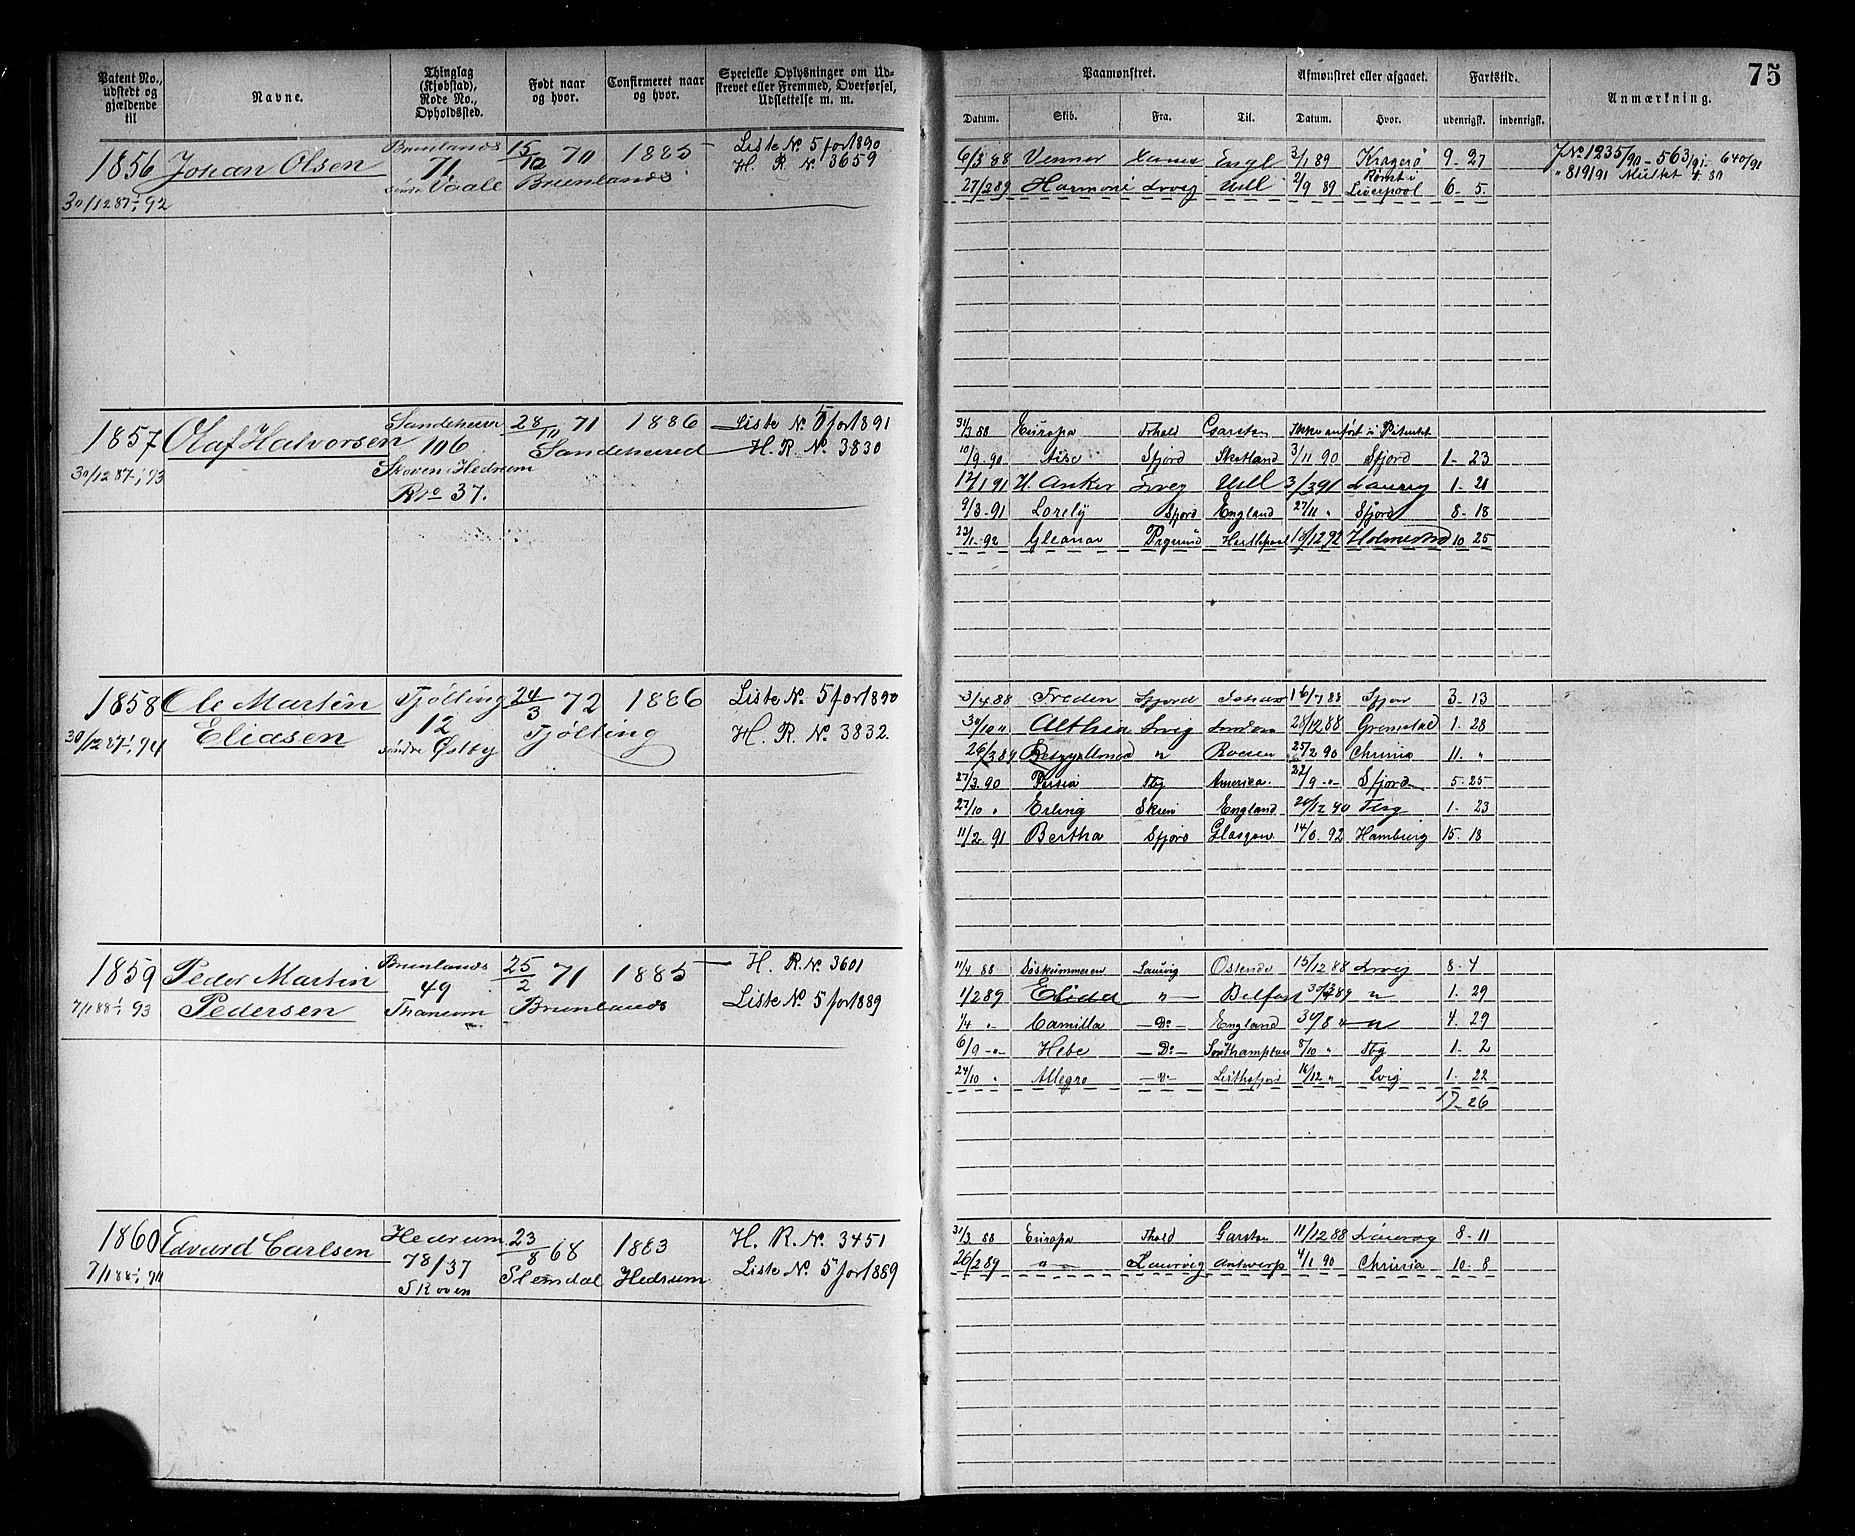 75
Patent No., udstedt og gjældende til
Navne.
Thinglag (Kjøbstad), Rode No., Opholdssted.
Født naar og hvor.
Confirmeret naar og hvor.
Specielle Oplysninger om Udskrevet eller Fremmed, Overførsel, Udslettelse m. m.
Paamønstret.
Afmønstret eller afgaaet.
Fartstid.
Anmærkning.
Datum. Skib. Fra. Til. Datum. Hvor. udenrigsk. indenrigsk.
1856 Johan Olsen Brunlands 15/12 70 1885 Liste No 5 for 1890
30/12 87 1/1 92 71 Brunlands H. R. No 3659
søndre Vaale
6/3 88 Venner Engl 3/1 89 Kragerø 9 - 27 J No 1235/90 - 563/91 - 640/91
27/2 89 Harmoni Lrvig Hull 2/9 89 Rømt i Liverpool 6 - 5 " 819/91 Mulkt
1857 Olaf Halvorsen Sandeherred 28/10 71 1886 Liste No 5 for 1891
30/12 87 1/1 93 106 Sandeherred H. R. No 3830
Skoven i Hedrum
R no 37.
31/3 88 Europa Thold Garston Ikke anført i Patentet
10/9 90 Sfjord Skotland 3/11 90 Sfjord 1 - 23
12/1 91 H. Anker Lrvig Hull 3/3 91 Laurvig 1 - 21
9/3 - 91 Lorely Sfjord England 27/11 " Sfjord 8 - 18
23/1 - 92 Gleanor Prgrund Hartlepool 18/12 92 Holmestrd 10 25
1858 Ole Martin Tjølling 24/3 72 1886 Liste No 5 for 1890
30/12 87 1/1 94 Eliasen 12 Tjølling H. R. No 3832.
søndre Østby
3/4 88 Freden Sfjord 16/7 88 Sfjor 3 - 13
30/10 " Althea Lrvig London 28/12 88 Gremstad 1 - 28
26/3 89 " Rouen 25/2 90 Chrinia 11. "
27/3. 90 Persia Tbg America. 22/9 - " - Sfjord 5 - 25
27/10 " Erling Skien England 20/12 90 Tbg 1 - 23
11/2. 91 Bertha Sfjord Glasgow 14/6. 92 Hamburg 15 - 18
1859 Peder Martin Brunlands 25/2 71 1885 H. R. No 3601
7/1 88 1/1 93 Pedersen 49 Brunlands Liste No 5 for 1889
Thanum
11/4 88 Søskummeren Laurvig Ostende 15/12 88 Lrvig 8 - 4
1/2 89 Elida " — Belfast 30/3 89 " 1 - 29
1/4 " Camilla — Do — England 31/8 " — " 4 - 29
6/9 - " - Hebe — Do — Southampton 8/10 " Tbg 1 - 2
24/10 " Allegro — " — 16/12 " Lvig 1 - 22
17 - 26
1860 Edvard Carlsen Hedrum 23/8 68 1883 H. R. No 3451
7/1 88 1/1 94 78/37 Stemdal Hedrum Liste No 5 for 1889
Skoven
31/3 88 Europa Thold Garston 11/12 88 8 - 11
26/2 89 — " — Laurvig Antwerp 4/1 90 Chrinia 10 - 8